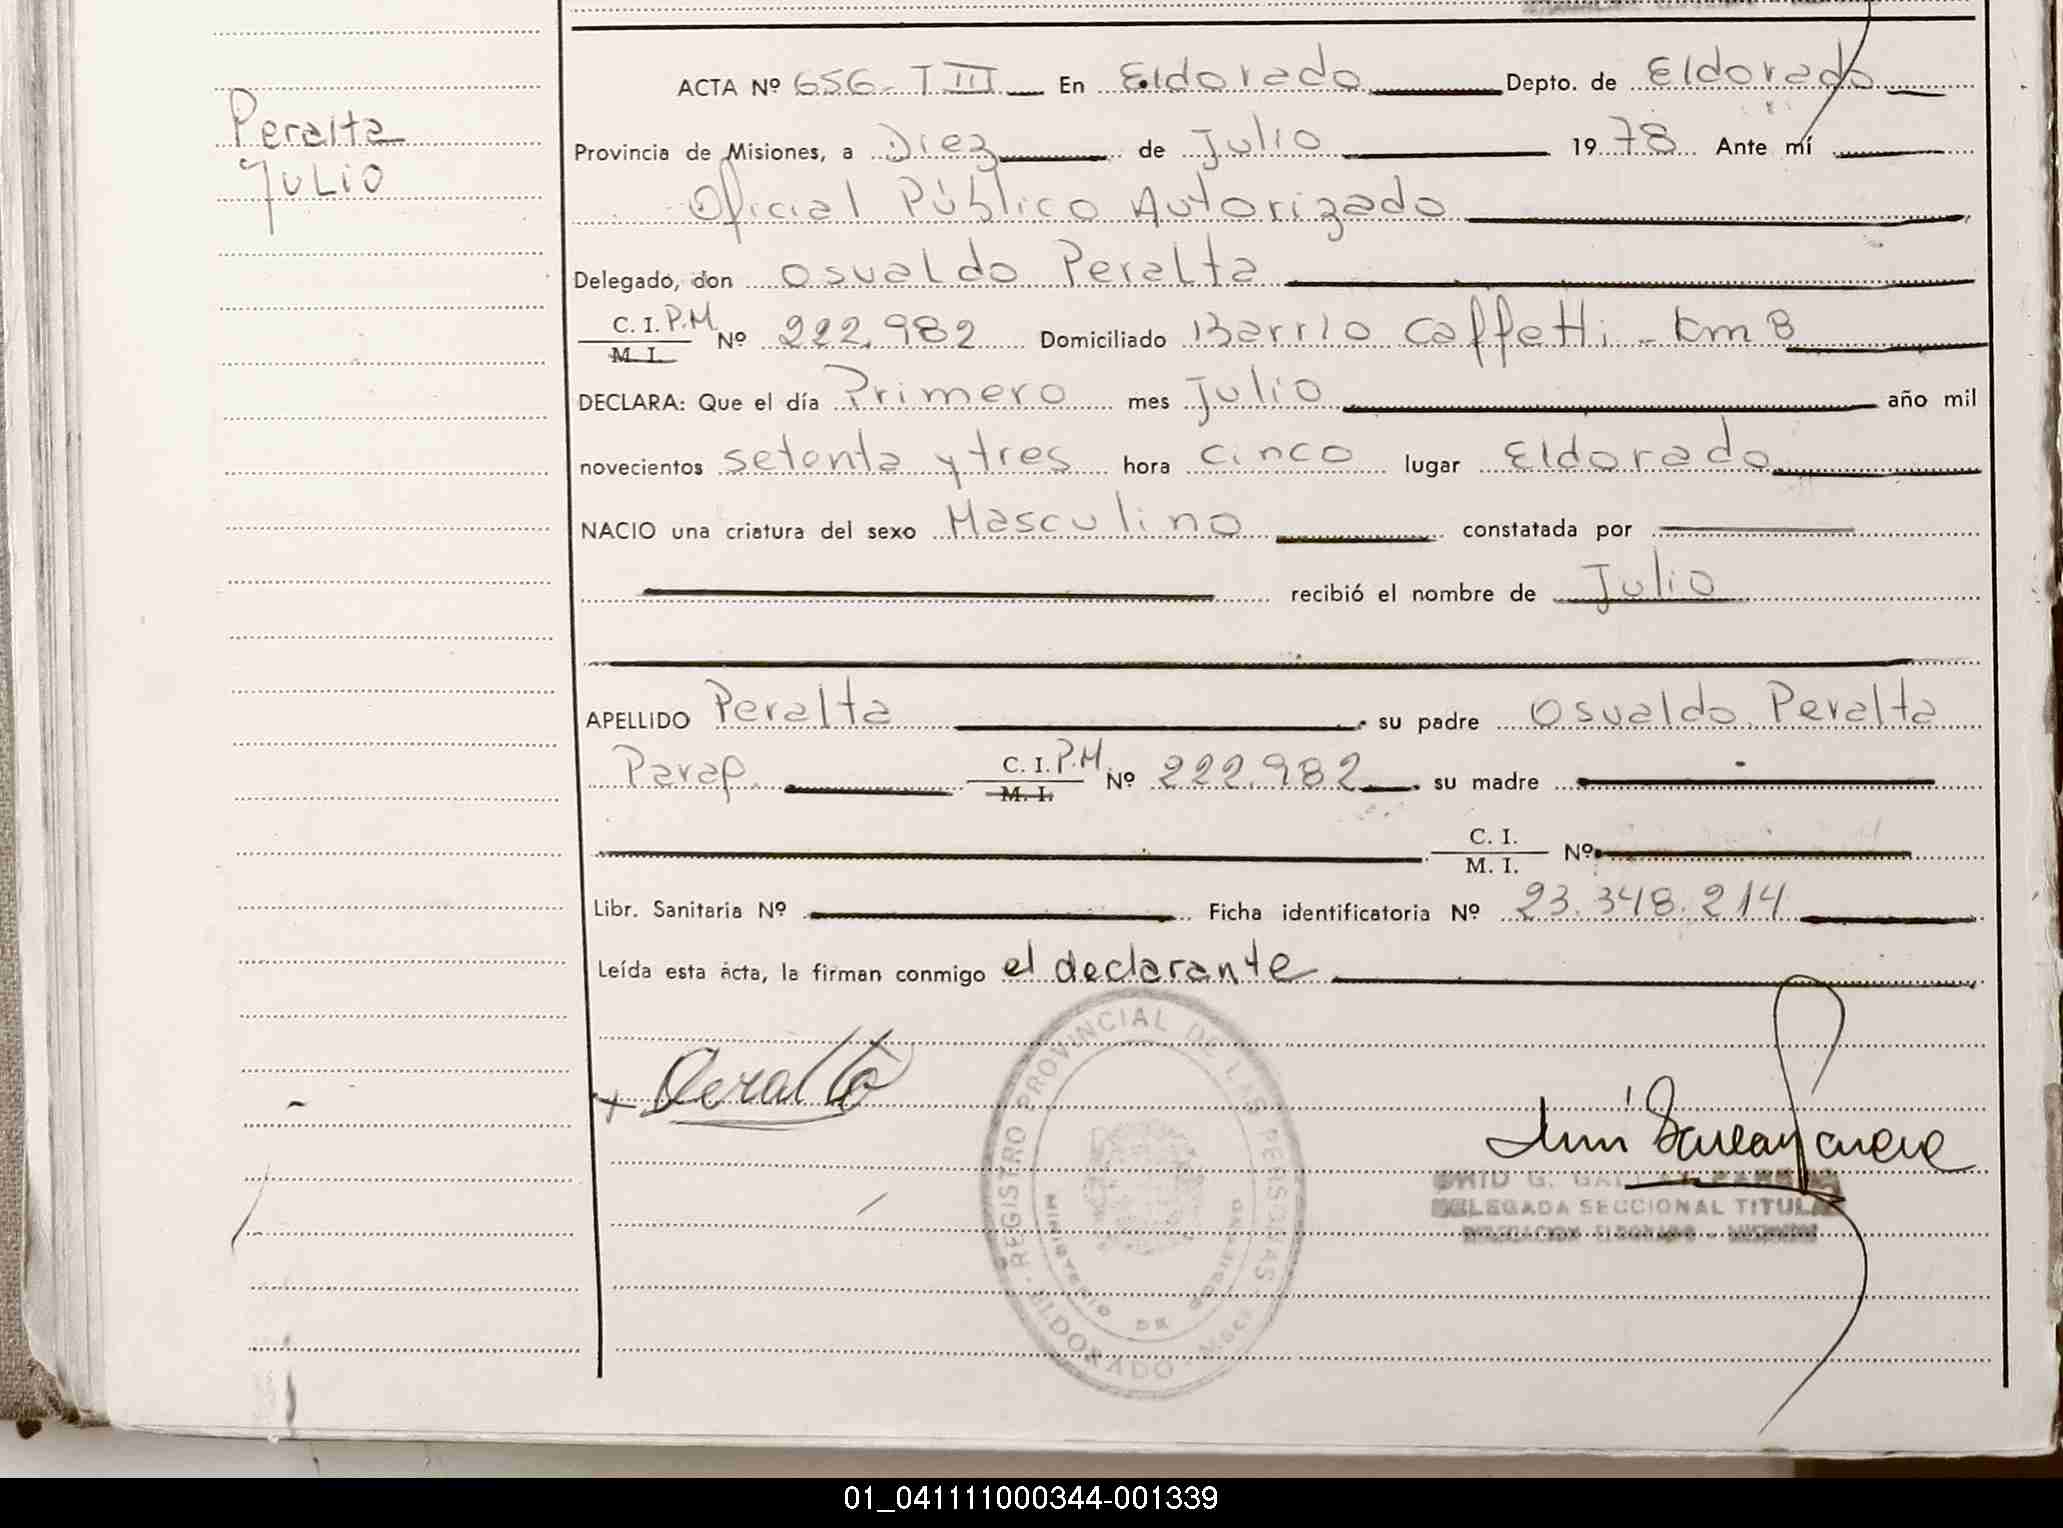 ACTA Nº 656 - T III En Eldorado Depto. de Eldorado
Peralta
JULIO
Provincia de Misiones, a Diez de Julio 1978 Ante mí
Oficial Público Autorizado
Delegado, don Osvaldo Peralta
C. I. P.M. Nº 222.982 Domiciliado Barrio Caffetti - Km 8
M. I.
DECLARA: Que el día Primero mes Julio año mil
novecientos setenta y tres hora cinco lugar Eldorado
NACIO una criatura del sexo Masculino constatada por
recibió el nombre de Julio
APELLIDO Peralta su padre Osvaldo Peralta
Parap. C. I. P.M. Nº 222.982 su madre
M. I.
C. I. Nº
M. I.
Libr. Sanitaria Nº Ficha identificatoria Nº 23.348.214
Leída esta acta, la firman conmigo el declarante
REGISTRO PROVINCIAL DE LAS PERSONAS
MINISTERIO DE GOBIERNO
ELDORADO
Peralta
DELEGADA SECCIONAL TITULAR
DELEGACION ELDORADO - MISIONES
01_041111000344-001339